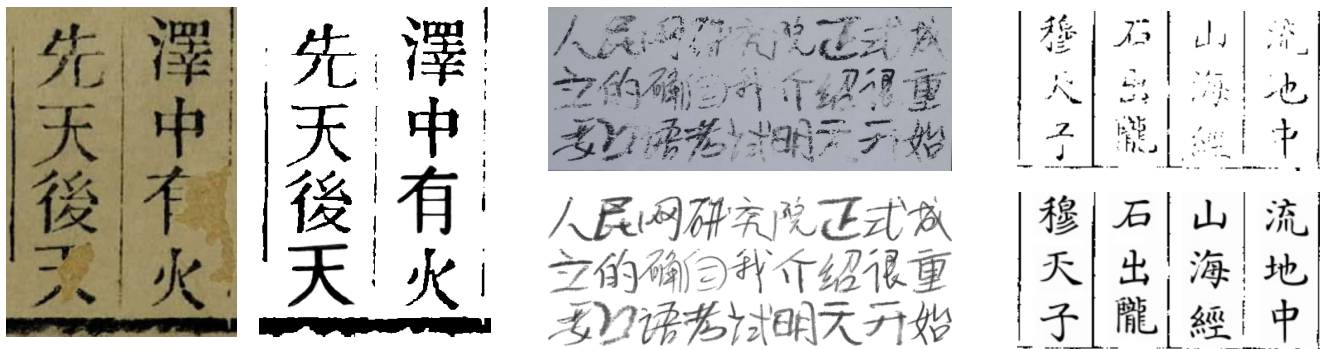 澤中有火
先天後天
澤中有火
先天後天
人民网研究院正式成
立的确自我介绍很重
要口语考试明天开始
人民网研究院正式成
立的确自我介绍很重
要口语考试明天开始
流地中
山海經
石出隴
穆天子
流地中
山海經
石出隴
穆天子